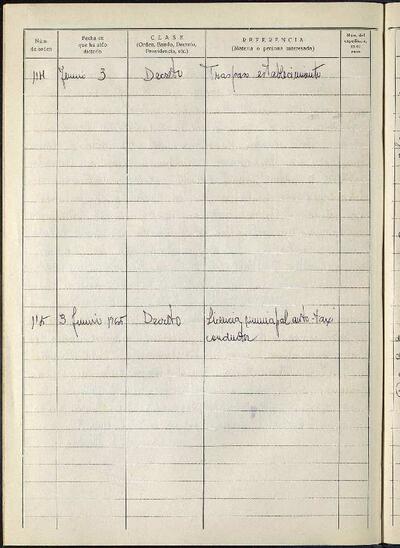 Núm. de orden
Fecha en que ha sido dictado
CLASE
(Orden, Bando, Decreto, Providencia, etc.)
REFERENCIA
(Materia o persona interesada)
Núm. del expediente, en su caso
114 Junio 3 Decreto Traspaso establecimiento
115 3 Junio 1965 Decreto Licencia municipal auto-taxi
conductor